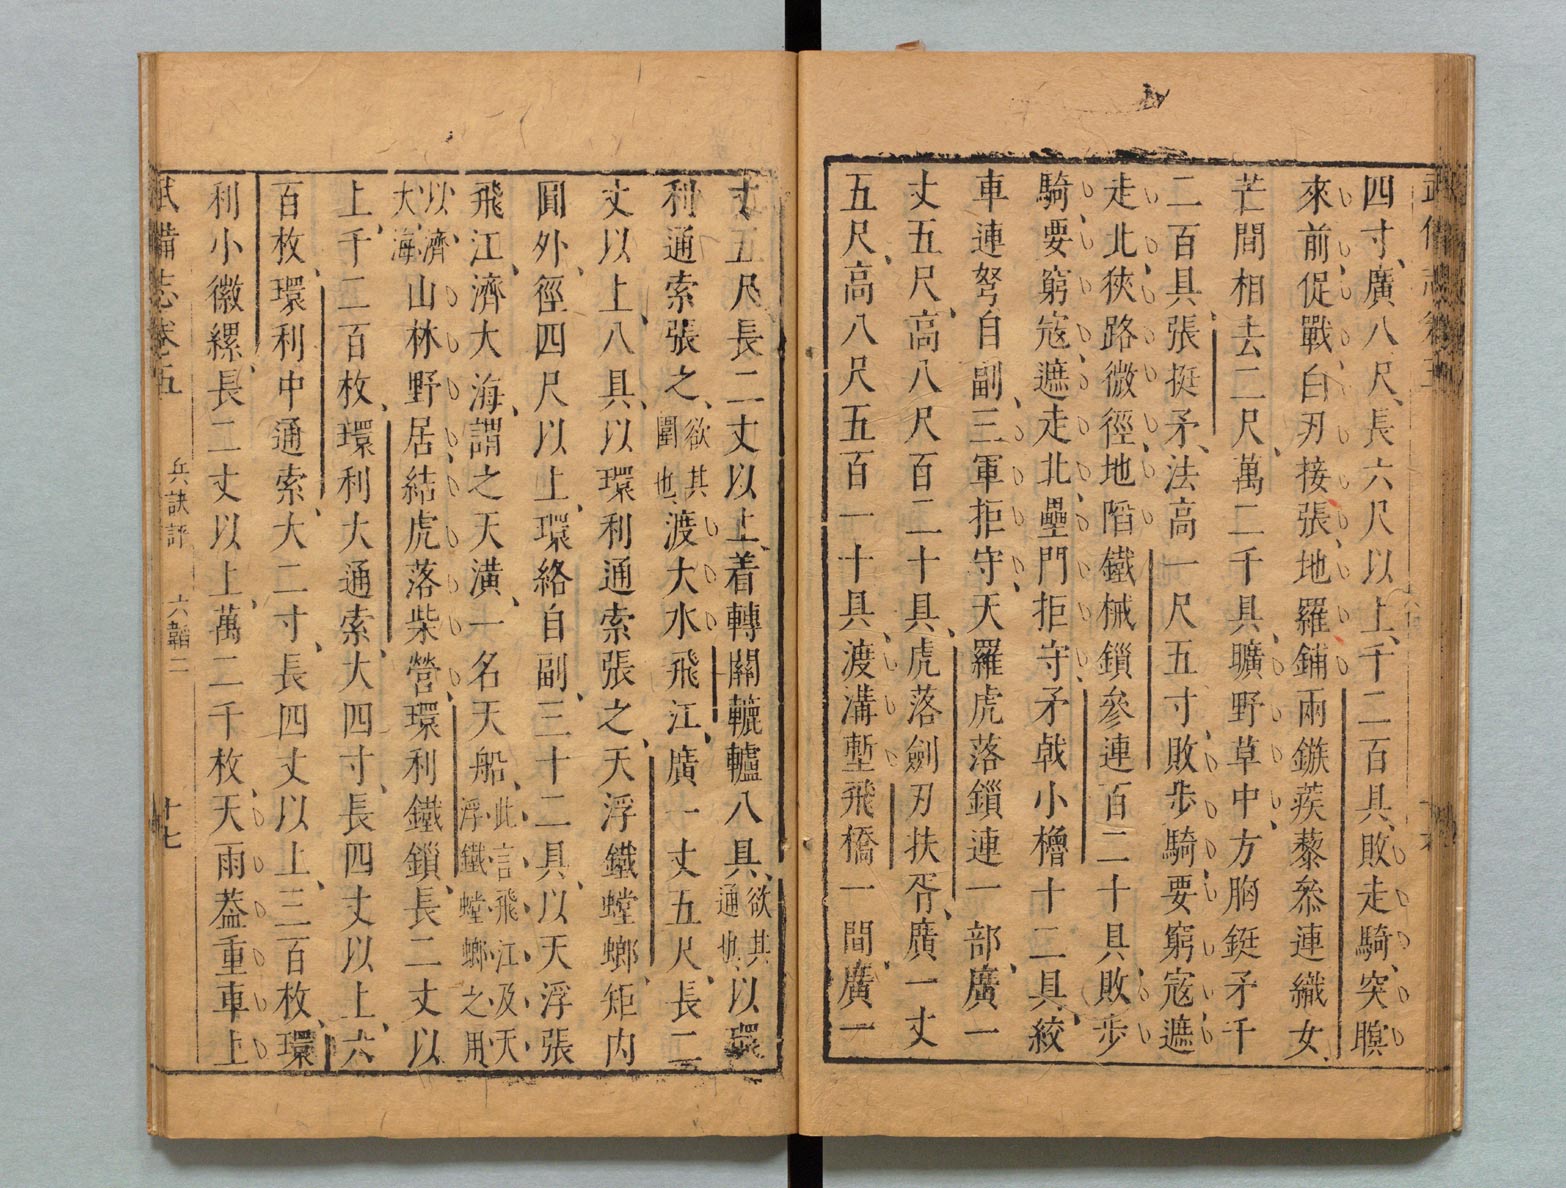 武備志卷五
四寸廣八尺長六尺以上千二百具敗走騎突暝
來前促戰白刃接張地羅鋪兩鏃蒺藜叅連織女
芒間相去二尺萬二千具曠野草中方胸鋋矛千
二百具張挺矛法高一尺五寸敗步騎要窮寇遮
走北狹路微徑地陷鐵械鎖參連百二十具敗步
騎要窮寇遮走北壘門拒守矛戟小櫓十二具絞
車連弩自副三軍拒守天羅虎落鎖連一部廣一
丈五尺高八尺百二十具虎落劍刃扶胥廣一丈
五尺高八尺五百一十具渡溝塹飛橋一間廣一
丈五尺長二丈以上着轉關轆轤八具欲其通也以環
利通索張之欲其圍也渡大水飛江廣一丈五尺長二
丈以上八具以環利通索張之天浮鐵螳螂矩內
圓外徑四尺以上環絡自副三十二具以天浮張
飛江濟大海謂之天潢一名天船此言飛江及天浮鐵螳螂之用
以濟大海山林野居結虎落柴營環利鐵鎖長二丈以
上千二百枚環利大通索大四寸長四丈以上六
百枚環利中通索大二寸長四丈以上三百枚環
利小徽縲長二丈以上萬二千枚天雨葢重車上
武備志卷五 兵訣評 六韜二 十七